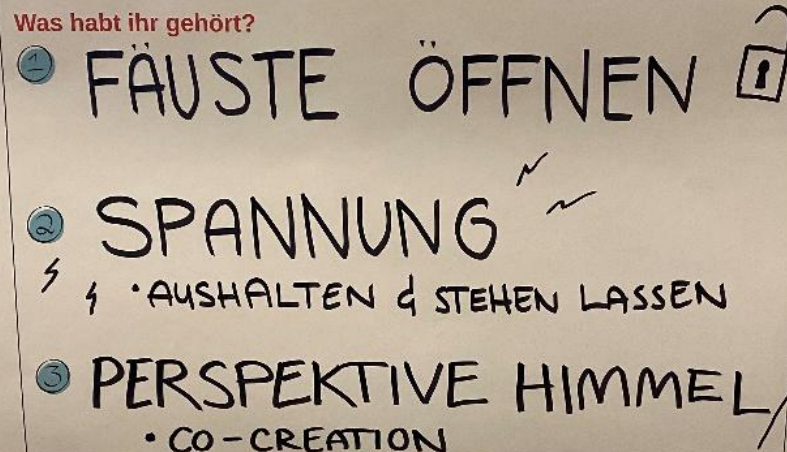 Was habt ihr gehört?
1 FÄUSTE ÖFFNEN
2 SPANNUNG
• AUSHALTEN & STEHEN LASSEN
3 PERSPEKTIVE HIMMEL
• CO-CREATION